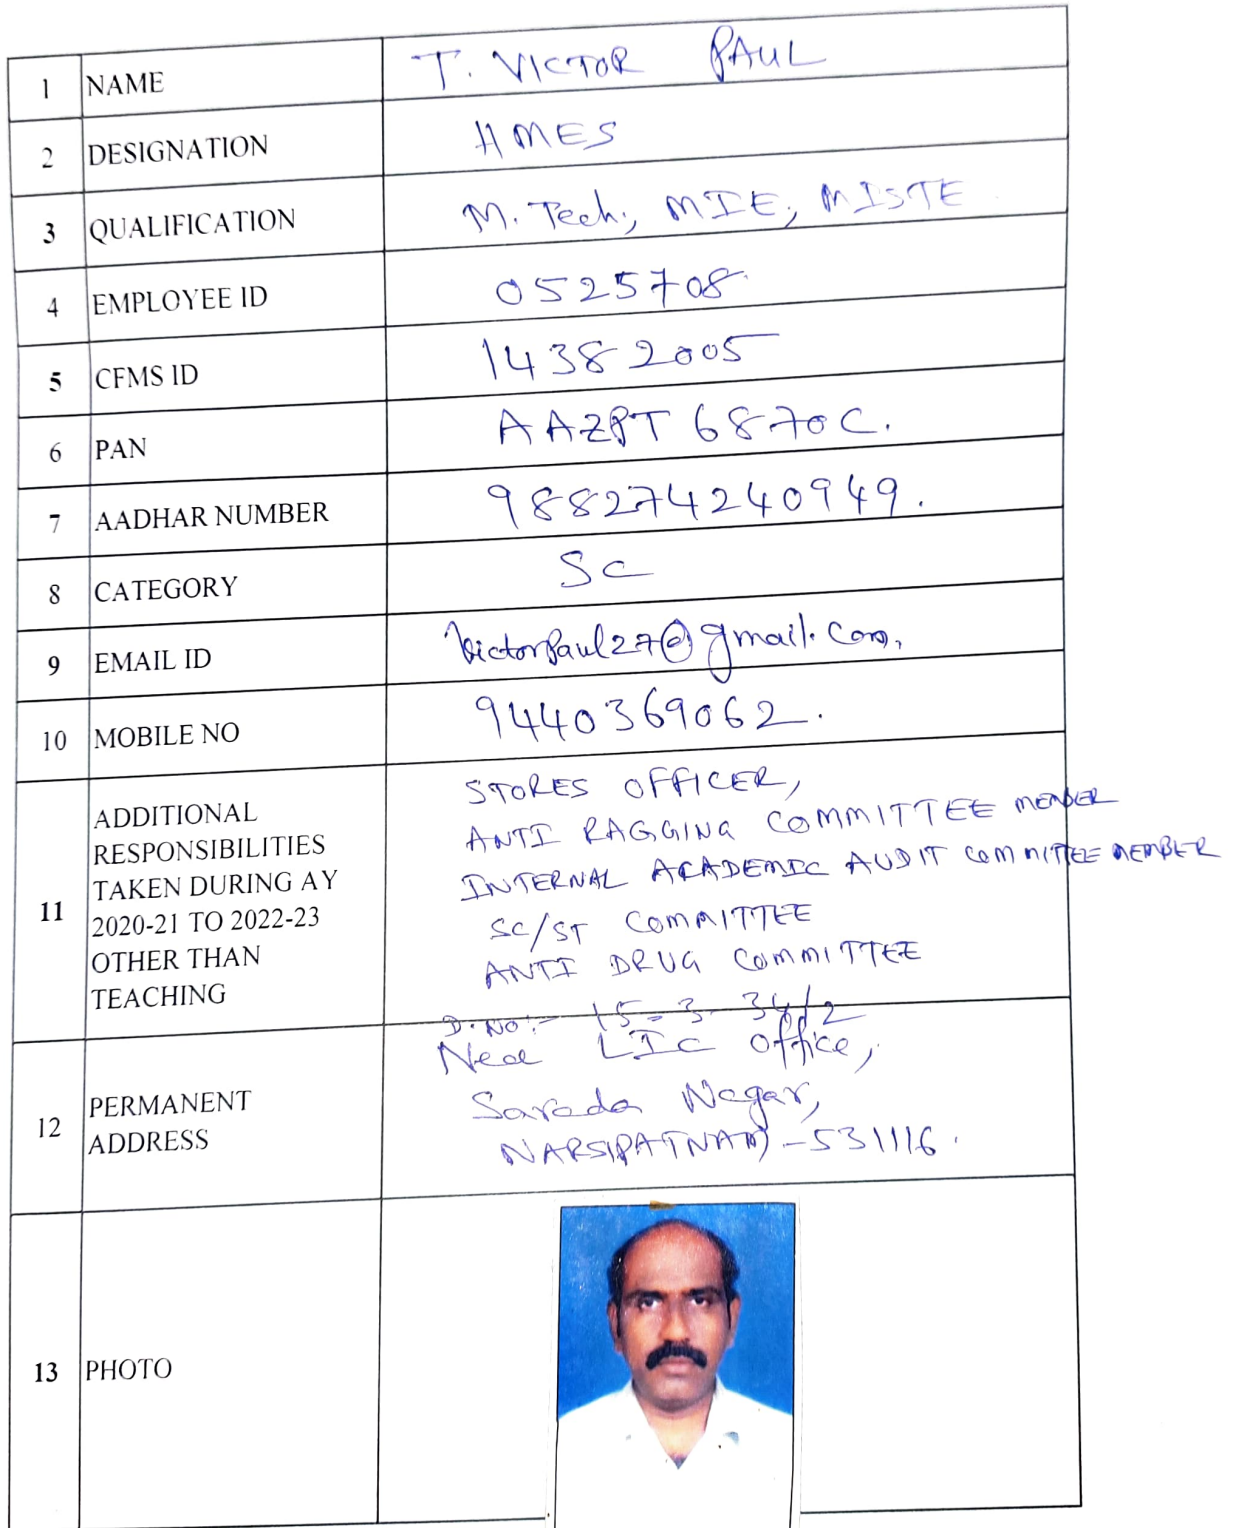 1 NAME T. VICTOR PAUL
2 DESIGNATION HMES
3 QUALIFICATION M. Tech., MIE, MISTE
4 EMPLOYEE ID 0525708
5 CFMS ID 14382005
6 PAN AAZPT 6870C.
7 AADHAR NUMBER 988274240949.
8 CATEGORY SC
9 EMAIL ID VictorPaul27@gmail.com,
10 MOBILE NO 9440369062.
11 ADDITIONAL
RESPONSIBILITIES
TAKEN DURING AY
2020-21 TO 2022-23
OTHER THAN
TEACHING
STORES OFFICER,
ANTI RAGGING COMMITTEE MEMBER
INTERNAL ACADEMIC AUDIT COMMITTEE MEMBER
SC/ST COMMITTEE
ANTI DRUG COMMITTEE
12 PERMANENT
ADDRESS
D.NO:- 15-3-34/2
Near LIC office,
Sarada Nagar,
NARSIPATNAM - 531116.
13 PHOTO